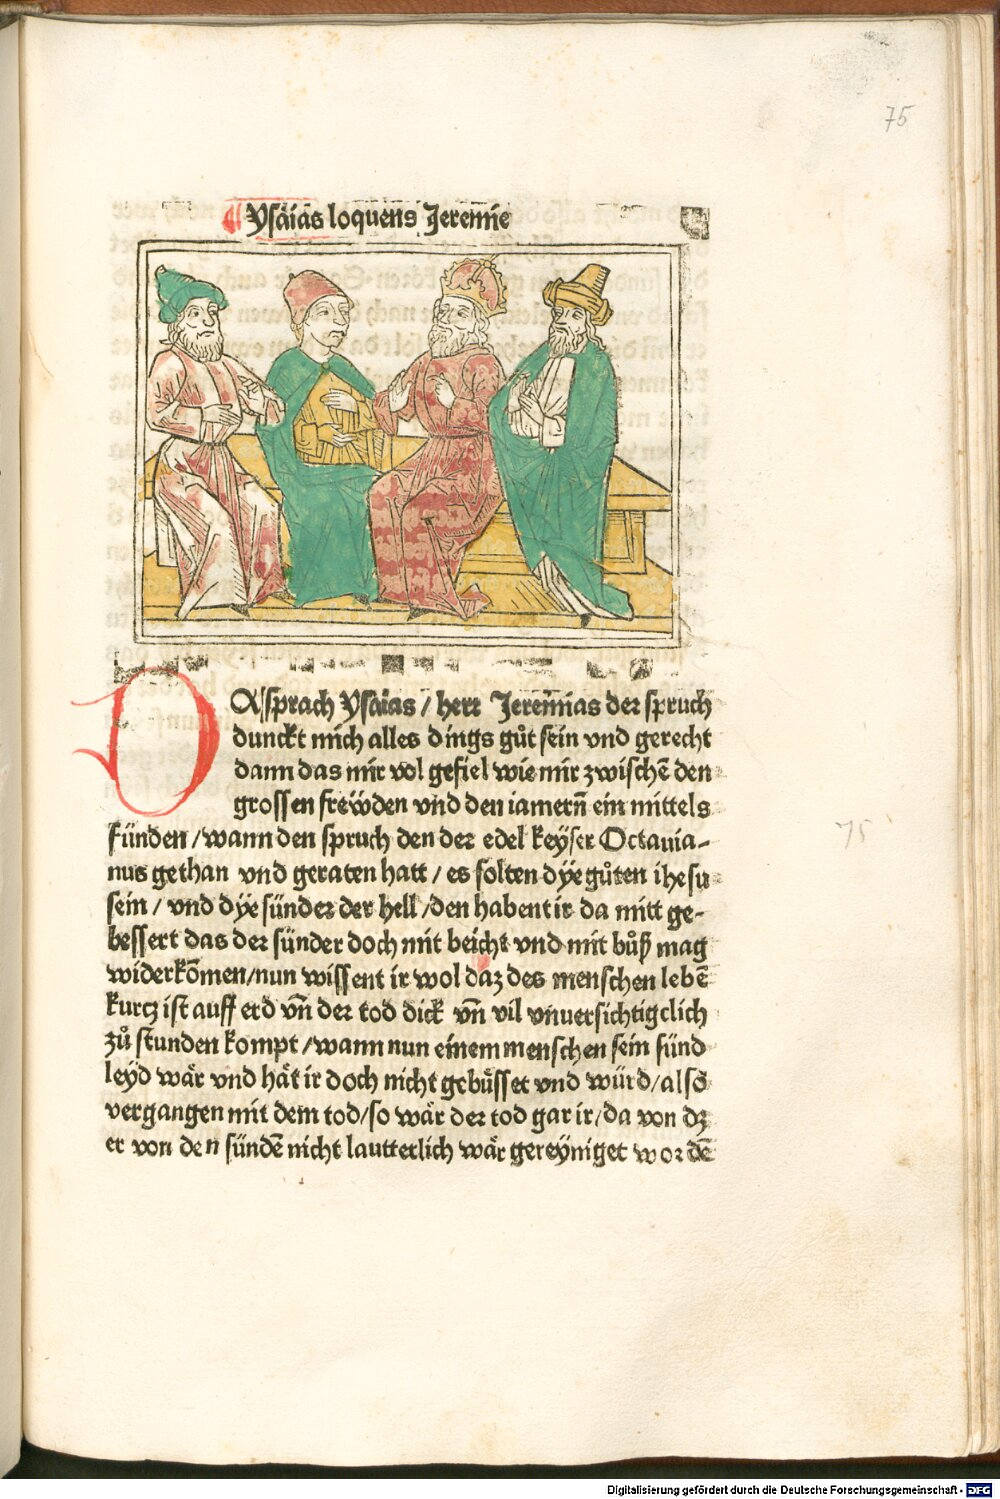 75
Ysaias loquens Jeremie
DA sprach Ysaias / herr Jeremias der spruch
dunckt mich alles dings gůt sein vnd gerecht
dann das mir vol gefiel wie mir zwischē den
grossen frewden vnd den iamern̄ ein mittels
fünden / wann den spruch den der edel keyser Octauia-
nus gethan vnd geraten hatt / es solten dÿe gůten ihesu
sein / vnd dÿe sünder der hell / den habent ir da mitt ge-
bessert das der sünder doch mit beicht vnd mit bůß mag
widerkōmen / nun wissent ir wol daz des menschen lebē
kurcz ist auff erd vn̄ der tod dick vn̄ vil vnuersichtigclich
zů stunden kompt / wann nun einem menschen sein sünd
leyd wär vnd hät ir doch nicht gebůsset vnd würd / also
vergangen mit dem tod / so wär der tod gar ir / da von dz
er von den sündē nicht lautterlich wär gereÿniget wordē
75
Digitalisierung gefördert durch die Deutsche Forschungsgemeinschaft - DFG